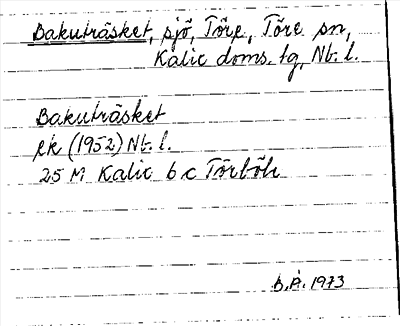 Bakuträsket, sjö, Töre, Töre sn,
Kalix doms. tg, Nb. l.
Bakuträsket
ek (1952) Nb. l.
25 M Kalix 6 c Törböle
B.P. 1973